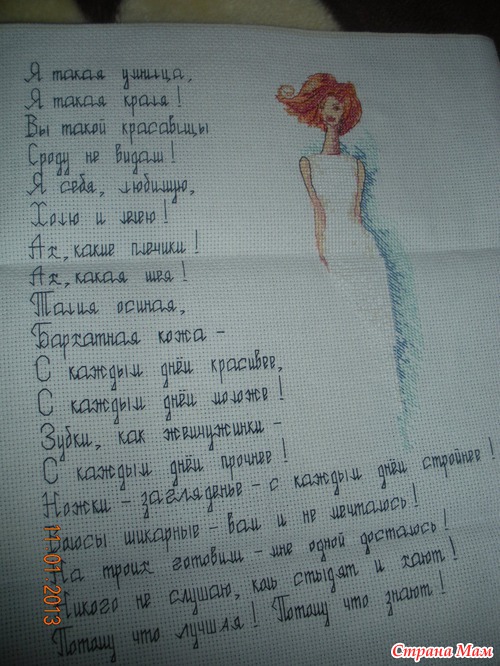 Я такая умница,
Я такая краля!
Вы такой красавицы
Сроду не видали!
Я себя, любимую,
Холю и лелею!
Ах, какие плечики!
Ах, какая шея!
Талия осиная,
Бархатная кожа -
С каждым днём красивее,
С каждым днём моложе!
Зубки, как жемчужинки -
С каждым днём прочнее!
Ножки - загляденье - с каждым днём стройнее!
Волосы шикарные - вам и не мечталось!
На троих готовили - мне одной досталось!
Никого не слушаю, коль стыдят и хают!
Потому что лучшая! Потому что знают!
11.01.2013
Страна Мам